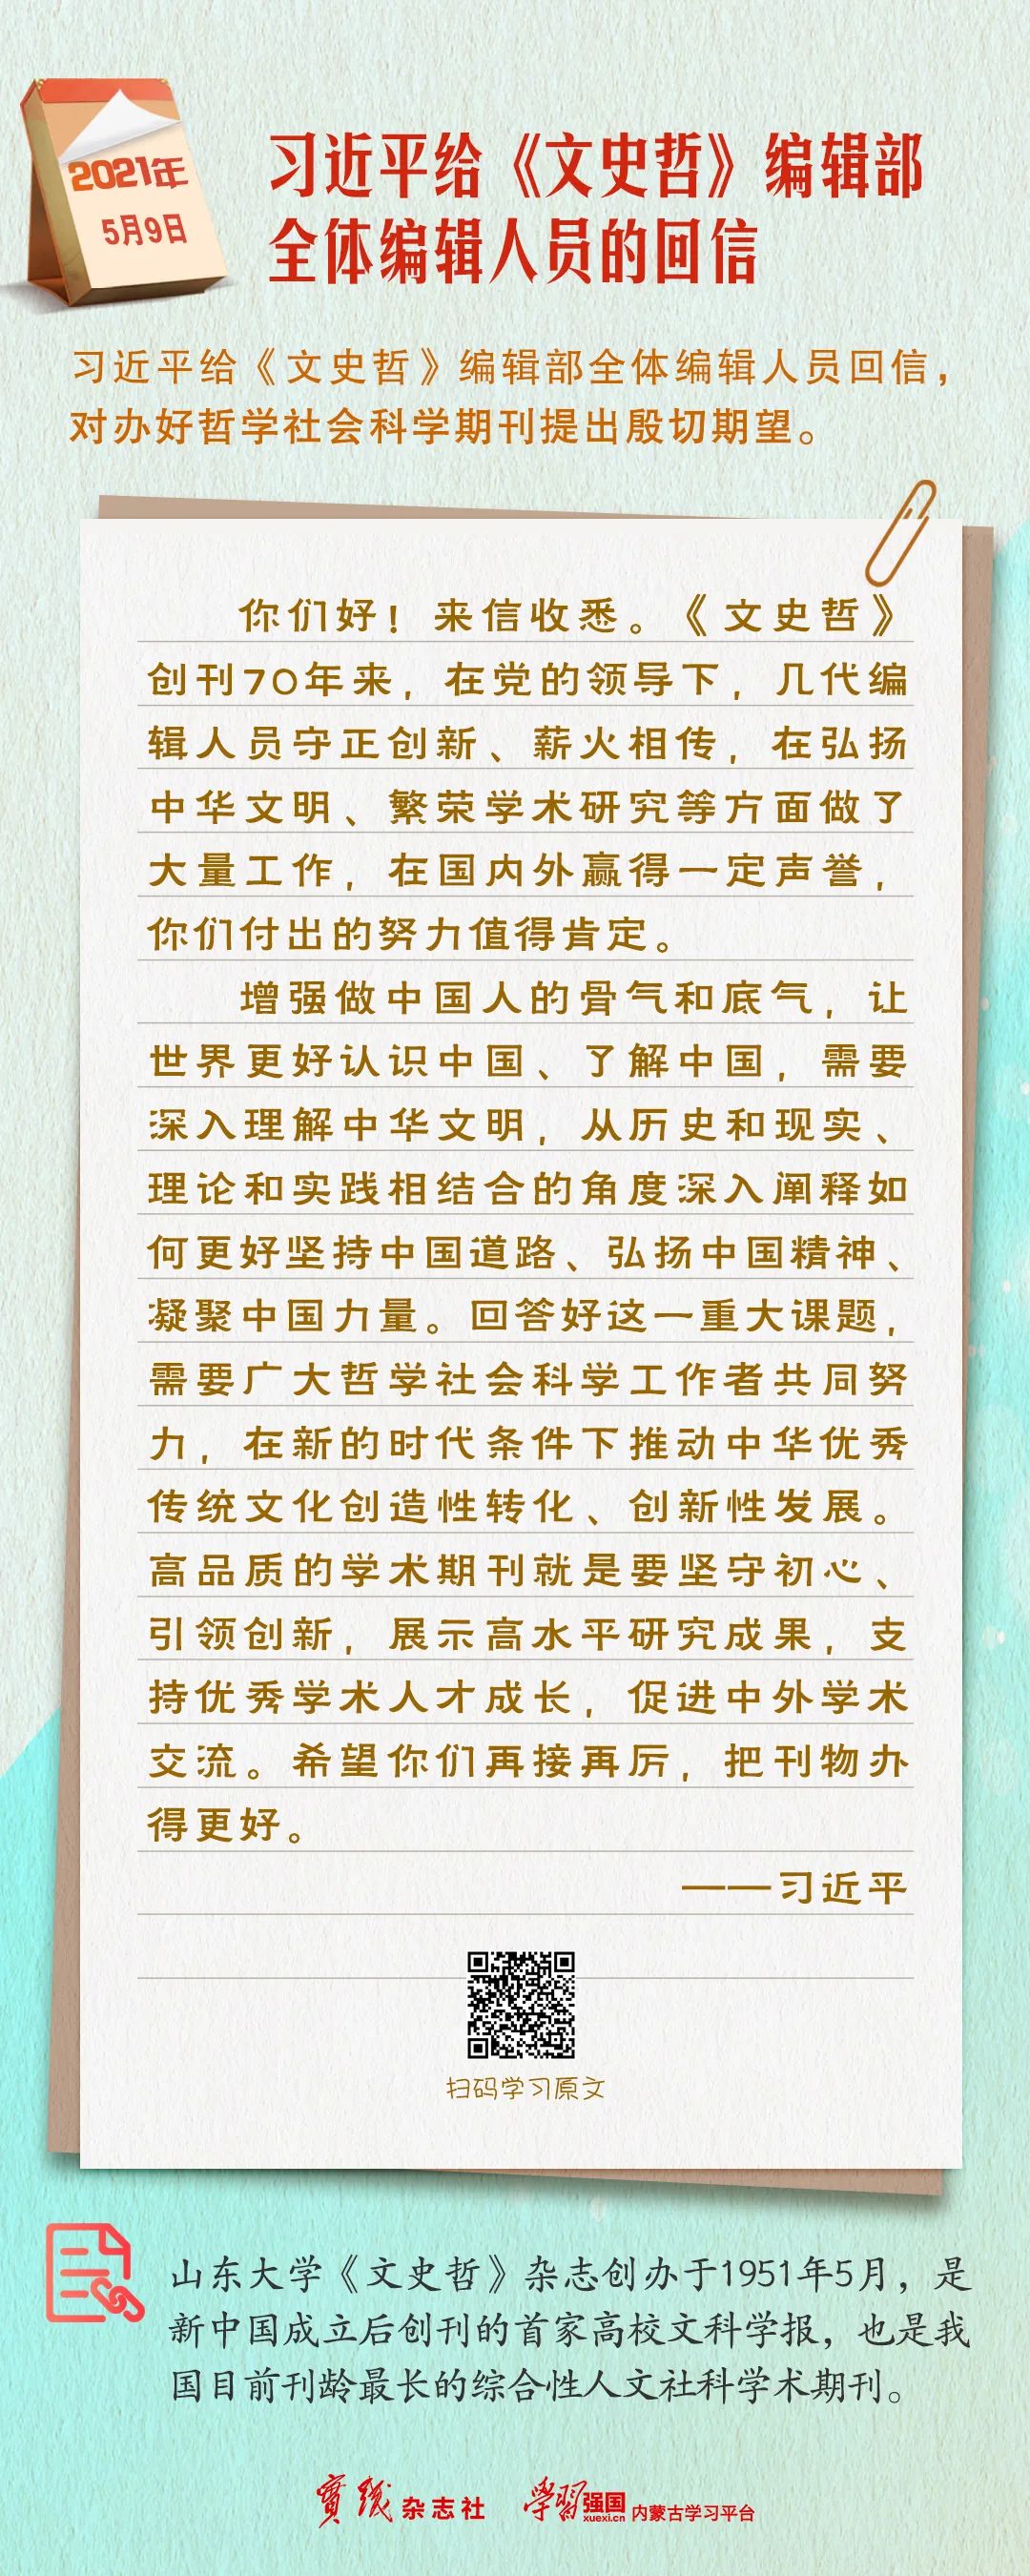 2021年
5月9日
习近平给《文史哲》编辑部
全体编辑人员的回信
习近平给《文史哲》编辑部全体编辑人员回信，
对办好哲学社会科学期刊提出殷切期望。
你们好！来信收悉。《文史哲》
创刊70年来，在党的领导下，几代编
辑人员守正创新、薪火相传，在弘扬
中华文明、繁荣学术研究等方面做了
大量工作，在国内外赢得一定声誉，
你们付出的努力值得肯定。
增强做中国人的骨气和底气，让
世界更好认识中国、了解中国，需要
深入理解中华文明，从历史和现实、
理论和实践相结合的角度深入阐释如
何更好坚持中国道路、弘扬中国精神、
凝聚中国力量。回答好这一重大课题，
需要广大哲学社会科学工作者共同努
力，在新的时代条件下推动中华优秀
传统文化创造性转化、创新性发展。
高品质的学术期刊就是要坚守初心、
引领创新，展示高水平研究成果，支
持优秀学术人才成长，促进中外学术
交流。希望你们再接再厉，把刊物办
得更好。
——习近平
扫码学习原文
山东大学《文史哲》杂志创办于1951年5月，是
新中国成立后创刊的首家高校文科学报，也是我
国目前刊龄最长的综合性人文社科学术期刊。
實践杂志社 學習强国 xuexi.cn 内蒙古学习平台